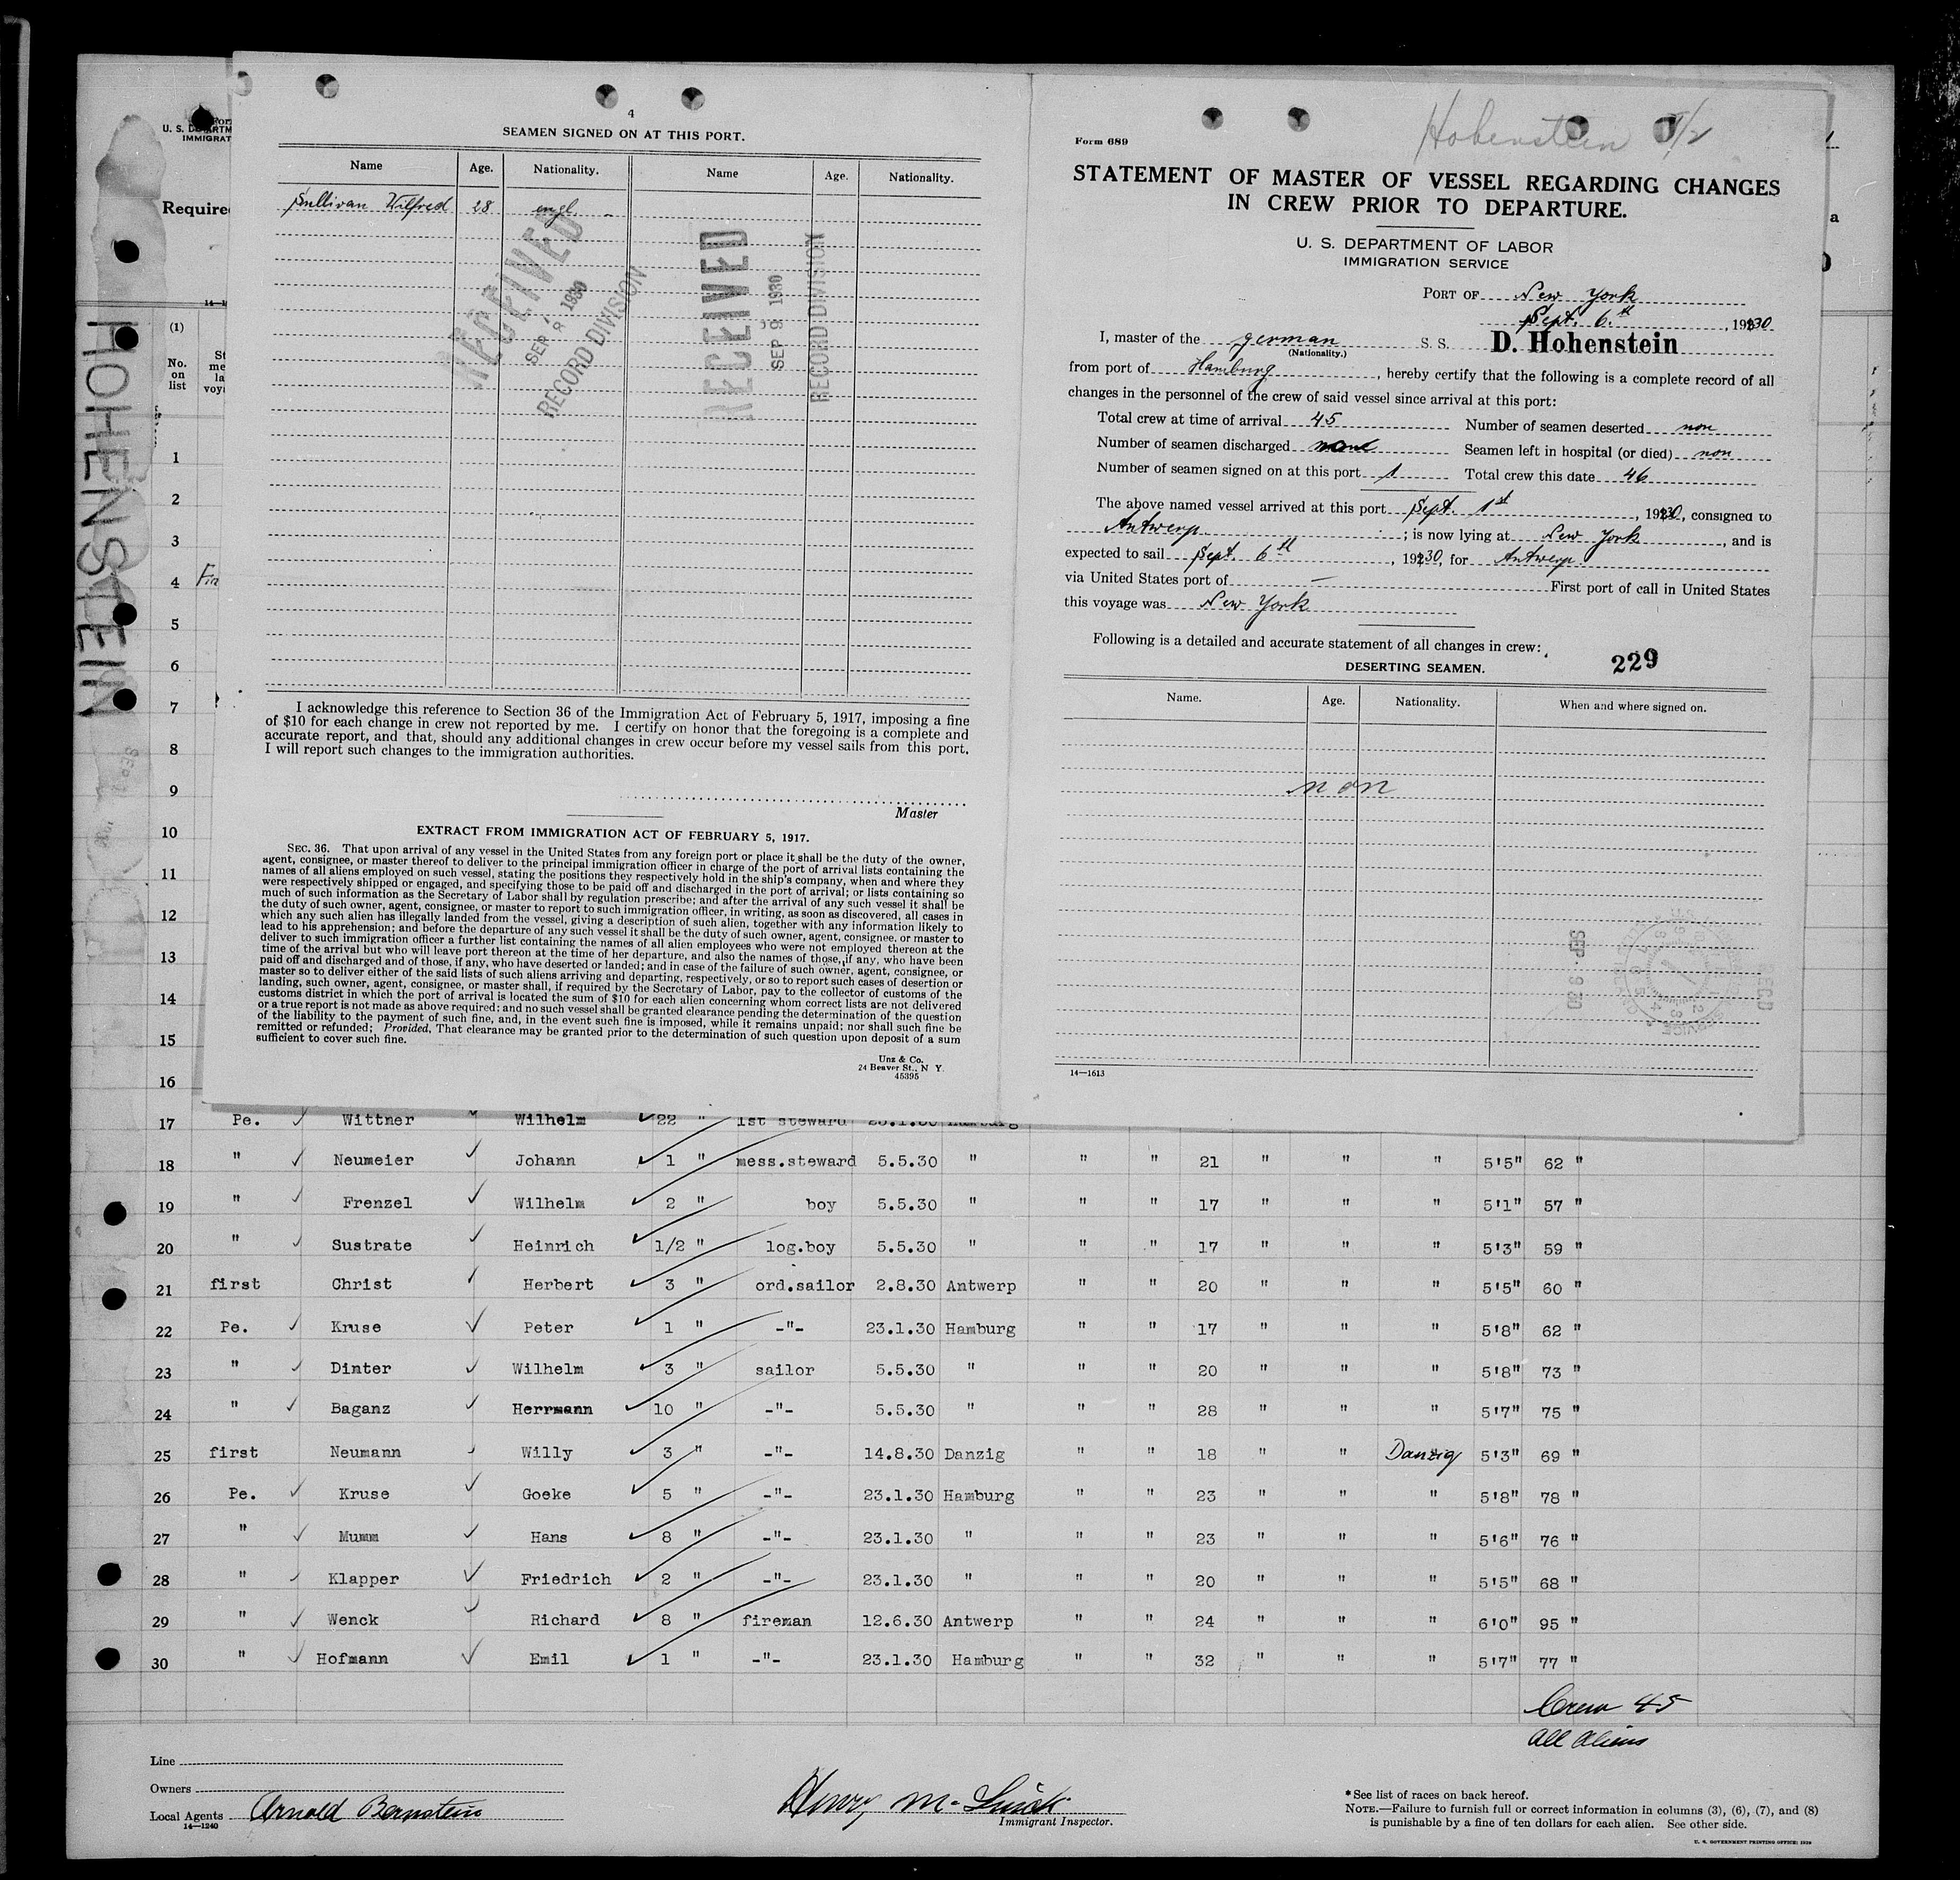 4
SEAMEN SIGNED ON AT THIS PORT.
Name Age. Nationality. Name Age. Nationality.
Sullivan Wilfred 28 engl.
RECEIVED
SEP 8 1930
RECORD DIVISION
RECEIVED
SEP 9 1930
RECORD DIVISION
I acknowledge this reference to Section 36 of the Immigration Act of February 5, 1917, imposing a fine
of $10 for each change in crew not reported by me. I certify on honor that the foregoing is a complete and
accurate report, and that, should any additional changes in crew occur before my vessel sails from this port,
I will report such changes to the immigration authorities.
Master
EXTRACT FROM IMMIGRATION ACT OF FEBRUARY 5, 1917.
SEC. 36. That upon arrival of any vessel in the United States from any foreign port or place it shall be the duty of the owner,
agent, consignee, or master thereof to deliver to the principal immigration officer in charge of the port of arrival lists containing the
names of all aliens employed on such vessel, stating the positions they respectively hold in the ship's company, when and where they
were respectively shipped or engaged, and specifying those to be paid off and discharged in the port of arrival; or lists containing so
much of such information as the Secretary of Labor shall by regulation prescribe; and after the arrival of any such vessel it shall be
the duty of such owner, agent, consignee, or master to report to such immigration officer, in writing, as soon as discovered, all cases in
which any such alien has illegally landed from the vessel, giving a description of such alien, together with any information likely to
lead to his apprehension; and before the departure of any such vessel it shall be the duty of such owner, agent, consignee, or master to
deliver to such immigration officer a further list containing the names of all alien employees who were not employed thereon at the
time of the arrival but who will leave port thereon at the time of her departure, and also the names of those, if any, who have been
paid off and discharged and of those, if any, who have deserted or landed; and in case of the failure of such owner, agent, consignee, or
master so to deliver either of the said lists of such aliens arriving and departing, respectively, or so to report such cases of desertion or
landing, such owner, agent, consignee, or master shall, if required by the Secretary of Labor, pay to the collector of customs of the
customs district in which the port of arrival is located the sum of $10 for each alien concerning whom correct lists are not delivered
or a true report is not made as above required; and no such vessel shall be granted clearance pending the determination of the question
of the liability to the payment of such fine, and, in the event such fine is imposed, while it remains unpaid; nor shall such fine be
remitted or refunded; Provided, That clearance may be granted prior to the determination of such question upon deposit of a sum
sufficient to cover such fine.
Unz & Co.
24 Beaver St., N Y.
45395
Hohenstein
Form 689
STATEMENT OF MASTER OF VESSEL REGARDING CHANGES
IN CREW PRIOR TO DEPARTURE.
U. S. DEPARTMENT OF LABOR
IMMIGRATION SERVICE
PORT OF New York
Sept. 6.th , 1930
I, master of the german S. S. D. Hohenstein
(Nationality.)
from port of Hamburg , hereby certify that the following is a complete record of all
changes in the personnel of the crew of said vessel since arrival at this port:
Total crew at time of arrival 45 Number of seamen deserted non
Number of seamen discharged none Seamen left in hospital (or died) non
Number of seamen signed on at this port 1 Total crew this date 46
The above named vessel arrived at this port Sept. 1st , 1930, consigned to
Antwerp ; is now lying at New York , and is
expected to sail Sept. 6th , 1930, for Antwerp
via United States port of — First port of call in United States
this voyage was New York
Following is a detailed and accurate statement of all changes in crew:
229
DESERTING SEAMEN.
Name. Age. Nationality. When and where signed on.
non
SEP 9 30
REC'D
14—1613
HOHENSTEIN
U. S. DEPARTM
IMMIGRAT
Require
(1)
No.
on
list
1
2
3
4
5
6
7
8
9
10
11
12
13
14
15
16
17 Pe. Wittner Wilhelm 22 " 1st steward 23.1.30 Hamburg
18 " Neumeier Johann 1 " mess.steward 5.5.30 " " " 21 " " " 5'5" 62 "
19 " Frenzel Wilhelm 2 " boy 5.5.30 " " " 17 " " " 5'1" 57 "
20 " Sustrate Heinrich 1/2 " log.boy 5.5.30 " " " 17 " " " 5'3" 59 "
21 first Christ Herbert 3 " ord.sailor 2.8.30 Antwerp " " 20 " " " 5'5" 60 "
22 Pe. Kruse Peter 1 " -"- 23.1.30 Hamburg " " 17 " " " 5'8" 62 "
23 " Dinter Wilhelm 3 " sailor 5.5.30 " " " 20 " " " 5'8" 73 "
24 " Baganz Herrmann 10 " -"- 5.5.30 " " " 28 " " " 5'7" 75 "
25 first Neumann Willy 3 " -"- 14.8.30 Danzig " " 18 " " Danzig 5'3" 69 "
26 Pe. Kruse Goeke 5 " -"- 23.1.30 Hamburg " " 23 " " " 5'8" 78 "
27 " Mumm Hans 8 " -"- 23.1.30 " " " 23 " " " 5'6" 76 "
28 " Klapper Friedrich 2 " -"- 23.1.30 " " " 20 " " " 5'5" 68 "
29 " Wenck Richard 8 " fireman 12.6.30 Antwerp " " 24 " " " 6'0" 95 "
30 " Hofmann Emil 1 " -"- 23.1.30 Hamburg " " 32 " " " 5'7" 77 "
Crew 45
All Aliens
Line
Owners
Local Agents Arnold Bernstein
14—1240
Immigrant Inspector.
* See list of races on back hereof.
NOTE.—Failure to furnish full or correct information in columns (3), (6), (7), and (8)
is punishable by a fine of ten dollars for each alien. See other side.
U. S. GOVERNMENT PRINTING OFFICE: 1929